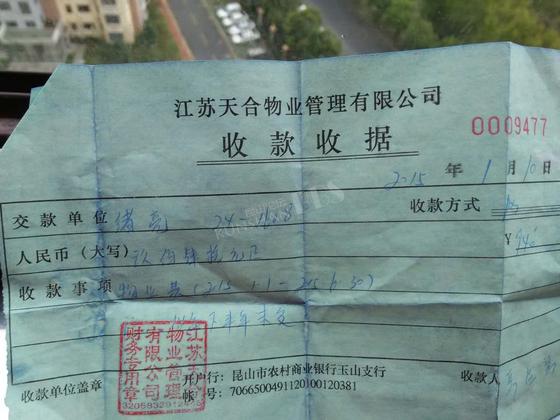 江苏天合物业管理有限公司
收款收据
0009477
2015年1月10日
交款单位 褚亮 24-1608 收款方式
人民币(大写) 玖佰肆拾元正 ¥ 940
收款事项 物业费(2015.1.1-2015.6.30)
江苏天合
物业管理
有限公司
财务专用章
开户行:昆山市农村商业银行玉山支行
收款单位盖章 帐号:7066500491120100120381 收款人